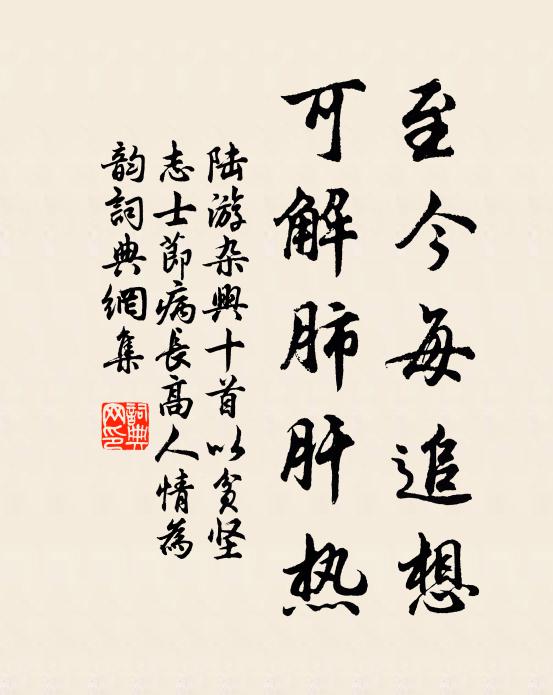 至今每追想
可解肺肝热
陆游杂興十首以貧坚
志士節病長高人情為
韵詞典網集
詞典
网印